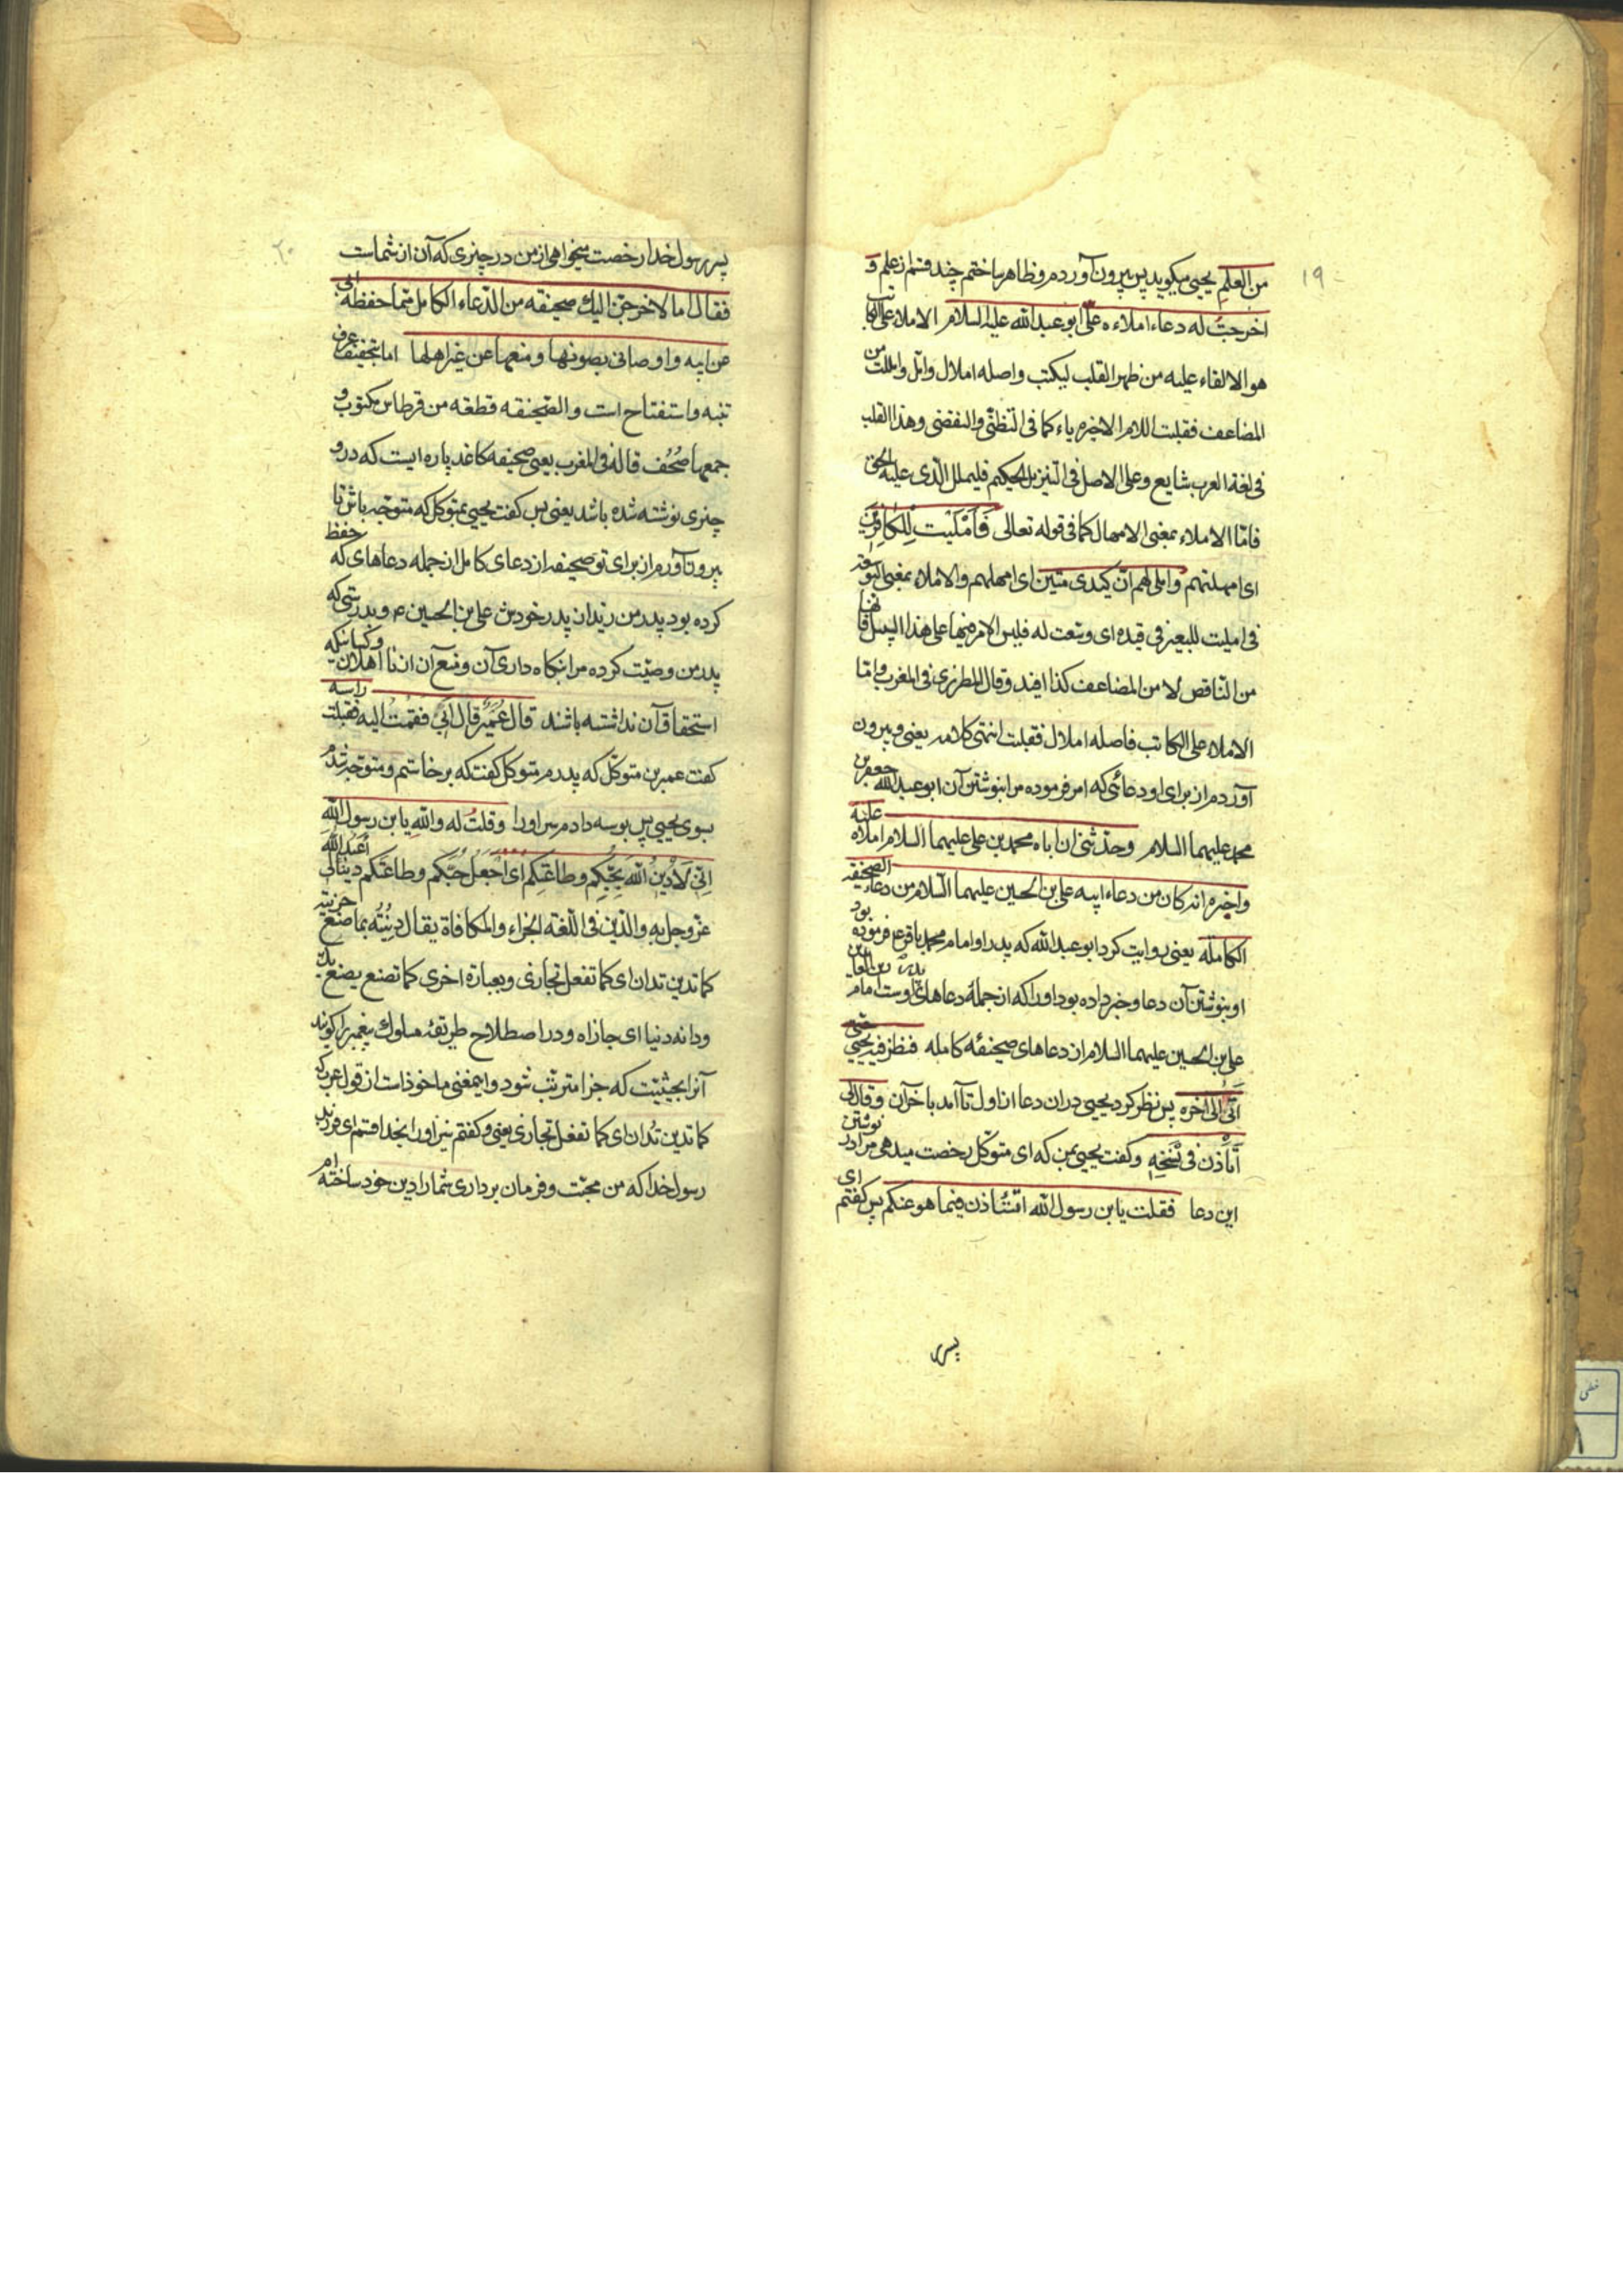 ۱۹
من العلم یحیی میکوید پس بیرون آوردم و ظاهر ساختم چند قسم از علم و
اخرجت له دعاء املاءه علیّ ابو عبد الله علیه السلام الاملاء علی الکاتب
هو الالقاء علیه من ظهر القلب لیکتب واصله املال وامّل واملت من
المضاعف فقلبت اللام الاخیره یاء کما فی التظنّی والتقضی وهذا القلب
فی لغة العرب شایع وعلی الاصل فی التنزیل الحکیم فلیملل الّذی علیه الحق
فامّا الاملاء بمعنی الامهال کما فی قوله تعالی فَاَمْلَیْت لِلکافِرین
ای امهلتهم وَاملی لهم انّ کیدی متین ای امهلهم والاملاء بمعنی التوسعة
فی املیت للبعیر فی قیده ای وسّعت له فلیس الامر فیها علی هذا السبیل فانها
من النّاقص لا من المضاعف کذا افید وقال المطرزی فی المغرب وامّا
الاملاء علی الکاتب فاصله املال فقلبت انتهی کلامه یعنی و بیرون
آوردم از برای او دعائی که امر فرموده مرا بنوشتن آن ابو عبد الله جعفر بن
محمد علیهما السلام وحدّثنی ان اباه محمد بن علی علیهما السلام املاه علیه
واخبره انه کان من دعاء ابیه علی بن الحسین علیهما السّلام من دعاء الصحیفة
الکامله یعنی روایت کرد ابو عبد الله که پدر او امام محمد باقر ع فرموده بود
او بنوشتن آن دعا وخبر داده بود او را که از جملهٔ دعاهای پدر اوست امام زین العابدین
علی بن الحسین علیهما السلام از دعاهای صحیفهٔ کامله فنظر فیه یحیی حتی
اَتَی الی اخره پس نظر کرد یحیی در ان دعا از اول تا آمد باخر آن وقال لی
أَتأذن فی نسخه وکفت یحیی بمن که ای متوکل رخصت میدهی مرا در نوشتن
این دعا فقلت یا بن رسول الله اتستاذن فیما هو عنکم پس کفتم ای
پسر
۲۰
پسر رسول خدا رخصت میخواهی از من در چیزی که آن از شماست
فقال اما لاخرجنّ الیك صحیفه من الدّعاء الکامل ممّا حفظه ابی
عن ابیه و اوصانی بصونها و منعها عن غیر اهلها اما بتخفیف حرف
تنبه و استفتاح است و الصّحیفه قطعه من قرطاس مکتوب و
جمعها صُحُف قاله فی المغرب یعنی صحیفه کاغد پاره ایست که در او
چیزی نوشته شده باشد یعنی پس کفت یحیی بمتوکل که متوجه باش تا
بیرون آورم از برای تو صحیفه از دعای کامل از جمله دعاهای که حفظ
کرده بود پدر من زید ان پدر خودش علی بن الحسین ع و بدرستی که
پدر من وصیّت کرده مرا بنکاه داری آن و منع آن از نا اهلان و کسانیکه
استحقاق آن نداشته باشند قال عُمَیر قال ابی فقمت الیه فقبلت راسه
کفت عمیر بن متوکّل که پدرم متوکل کفت که برخاستم و متوجه شدم
بسوی یحیی پس بوسه دادم سر او را وقلتُ له والله یا بن رسول الله
اِنّی لَاَدینُ اللهَ بِحُبّکم وطاعتِکم ای اجْعَلُ حُبّکم وطاعتکم دینا لی أعبد الله
عزّ وجل به والدّین فی اللّغة الجزاء والمکافاة یقال دِنْتُه بما صنع جزیته
کما تدین تدان ای کما تفعل تجازی وبعبارة اخری کما تصنع یصنع بك
ودانه دینا ای جازاه و در اصطلاح طریقهٔ سلوك پیغمبر را کویند
آنرا بحیثیت که جزا مترتب شود و اینمعنی ماخوذ است از قول عرب که
کما تدین تُدان ای کما تفعل تجازی یعنی و کفتم نیز او را بخدا قسم ای فرزند
رسول خدا که من محبّت و فرمان برداری شما را دین خود ساخته ام
خطی